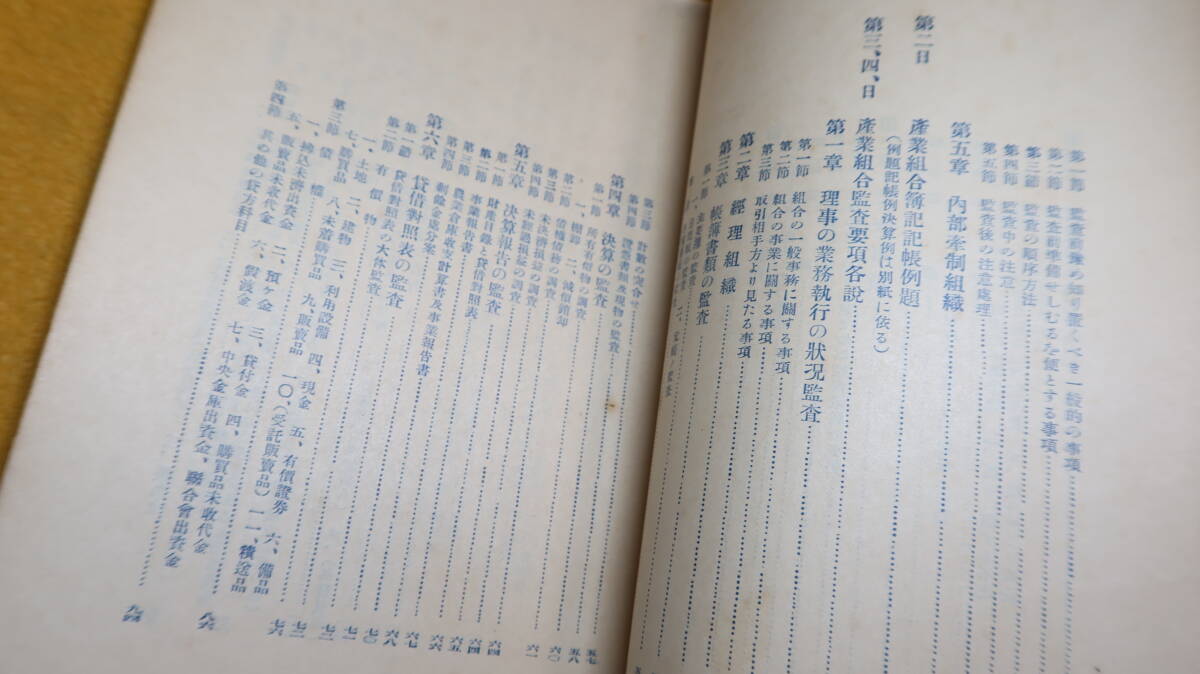 第一節 監査前豫め知り置くべき一般的の事項
第二節 監査前準備せしむるを便とする事項
第三節 監査の順序方法
第四節 監査中の注意
第五節 監査後の注意處理
第五章 內部牽制組織
第二日 產業組合簿記記帳例題
(例題記帳例決算例は別紙に依る)
第三、四、日 產業組合監査要項各說
第一章 理事の業務執行の狀況監査
第一節 組合の一般事務に關する事項
第二節 組合の事業に關する事項
第三節 取引相手方より見たる事項
第二章 經理組織
第三章 帳簿書類の監査
第一節
第三節 計數の突合 五七
第四節 證憑書類及現物の監査 五八
第四章 決算の監査 六〇
第一節 所有有價物の調査
一、棚卸 二、減價銷却
第二節 債權債務の調査
第三節 未決濟損益の調査
第四節 未經過損益の調査 六一
第五章 決算報告の監査
第一節 財產目錄 六四
第二節 貸借對照表 六四
第三節 事業報告書 六五
農業倉庫收支計算書及事業報告書 六六
第四節 剩餘金處分案 六七
第六章 貸借對照表の監査 六八
第一節 貸借對照表の大體監査 七〇
第二節 有價物 七一
一、土地 二、建物 三、利用設備 四、現金 五、有價證券 六、備品
七、購買品 八、未著購買品 九、販賣品 一〇、(受託販賣品) 一一、積送品
第三節 債權 七六
一、拂込未濟出資金 二、預ケ金 三、貸付金 四、購買品未收代金
五、販賣品未收代金 六、假渡金 七、中央金庫出資金、聯合會出資金 八六
第四節 其の他の貸方科目 九四